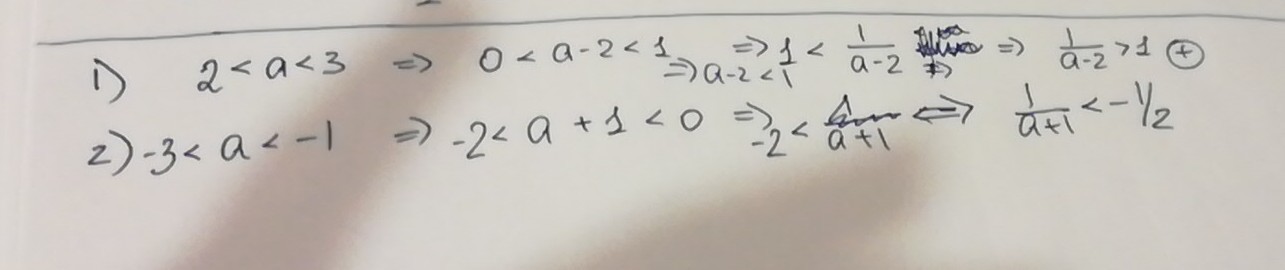 1) 2 < a < 3 => 0 < a - 2 < 1 => a - 2 < 1 => 1 < 1/(a-2) => 1/(a-2) > 1 ⊕
2) -3 < a < -1 => -2 < a + 1 < 0 => -2 < a+1 <=> 1/(a+1) < -1/2